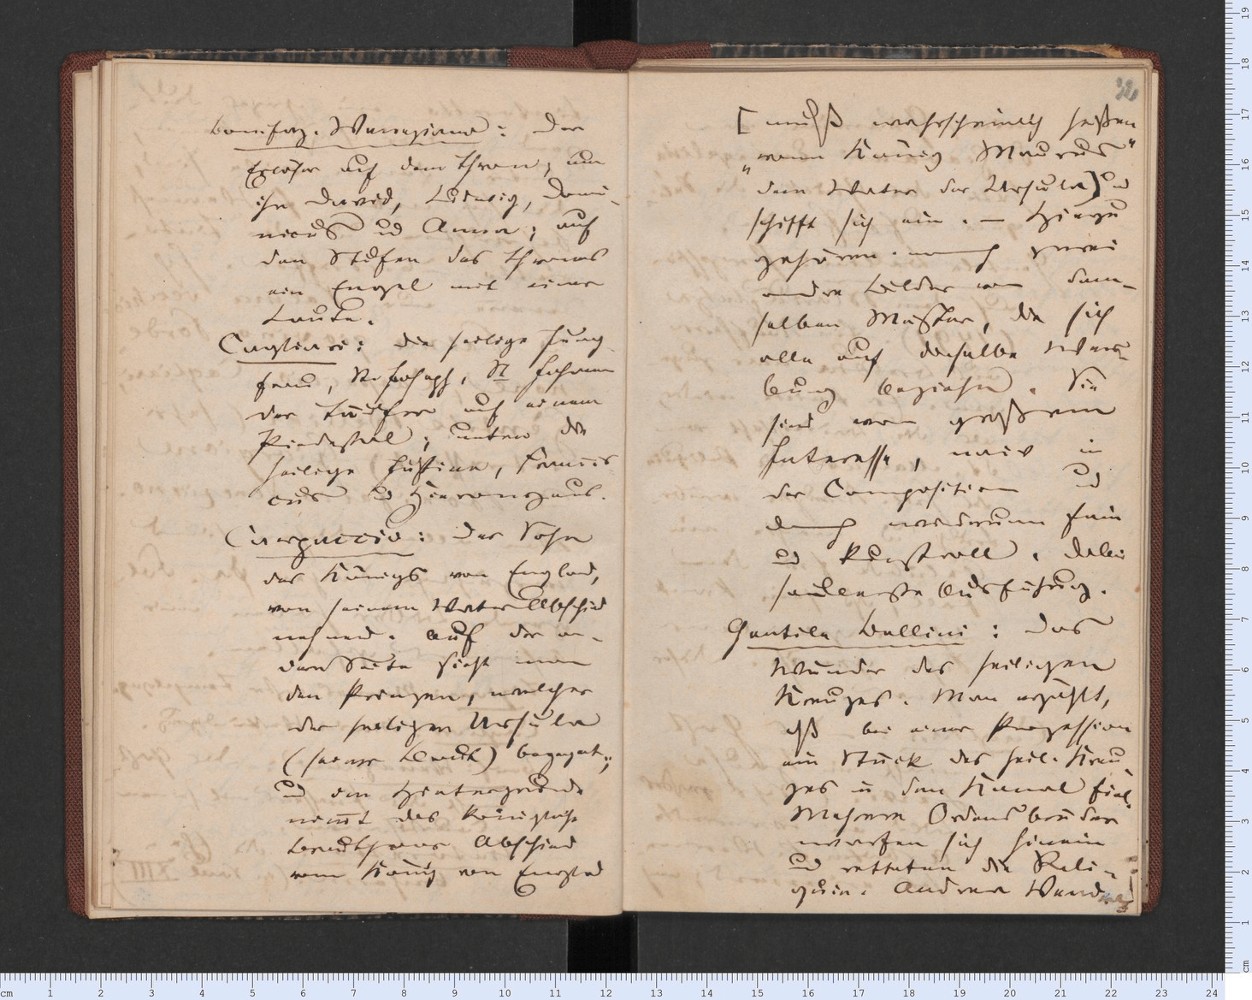 Bonifaz. Veneziano: Der
Erlöser auf dem Thron, um
ihn David, Ludwig, Domi-
nicus und Anna; auf
den Stufen des Thrones
ein Engel mit einer
Laute.
Cagliari: die heilige Jung
frau, St. Joseph, St Johann
der Täufer auf einem
Piedestal; unten die
heilige Justine, Francis
cus und Hieronymus.
Carpaccio: Der Sohn
des Königs von England,
von seinem Vater Abschied
nehmend. Auf der an-
dern Seite sieht man
den Prinzen, welcher
der heiligen Ursula
(seiner Braut) begegnet;
und im Hintergrunde
nimmt das Königliche
Brautpaar Abschied
vom König von England
32
[muß wahrscheinlich heißen
"vom König Maurus"
dem Vater der Ursula] und
schifft sich ein. — Hierzu
gehören noch zwei
andre Bilder von dem-
selben Meister, die sich
alle auf dieselbe Wer-
bung beziehn. Sie
sind von großem
Interesse, naiv in
der Composition und
doch wiederum fein
und kunstvoll, dabei
sauberste Ausführung.
Gentile Bellini: Das
Wunder des heiligen
Kreuzes. Man erzählt,
daß bei einer Prozession
ein Stück des heil. Kreu
zes in den Kanal fiel.
Mehrere Ordensbrüder
warfen sich hinein
und retteten die Reli-
quie. Andrea Vend